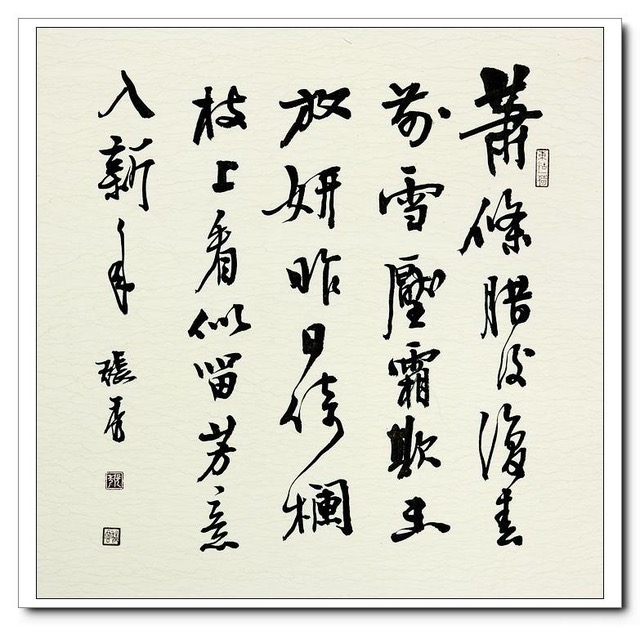 蕭條腊後復春
前雪壓霜欺未
放妍昨日倚欄
枝上看似留芳意
入新年
張